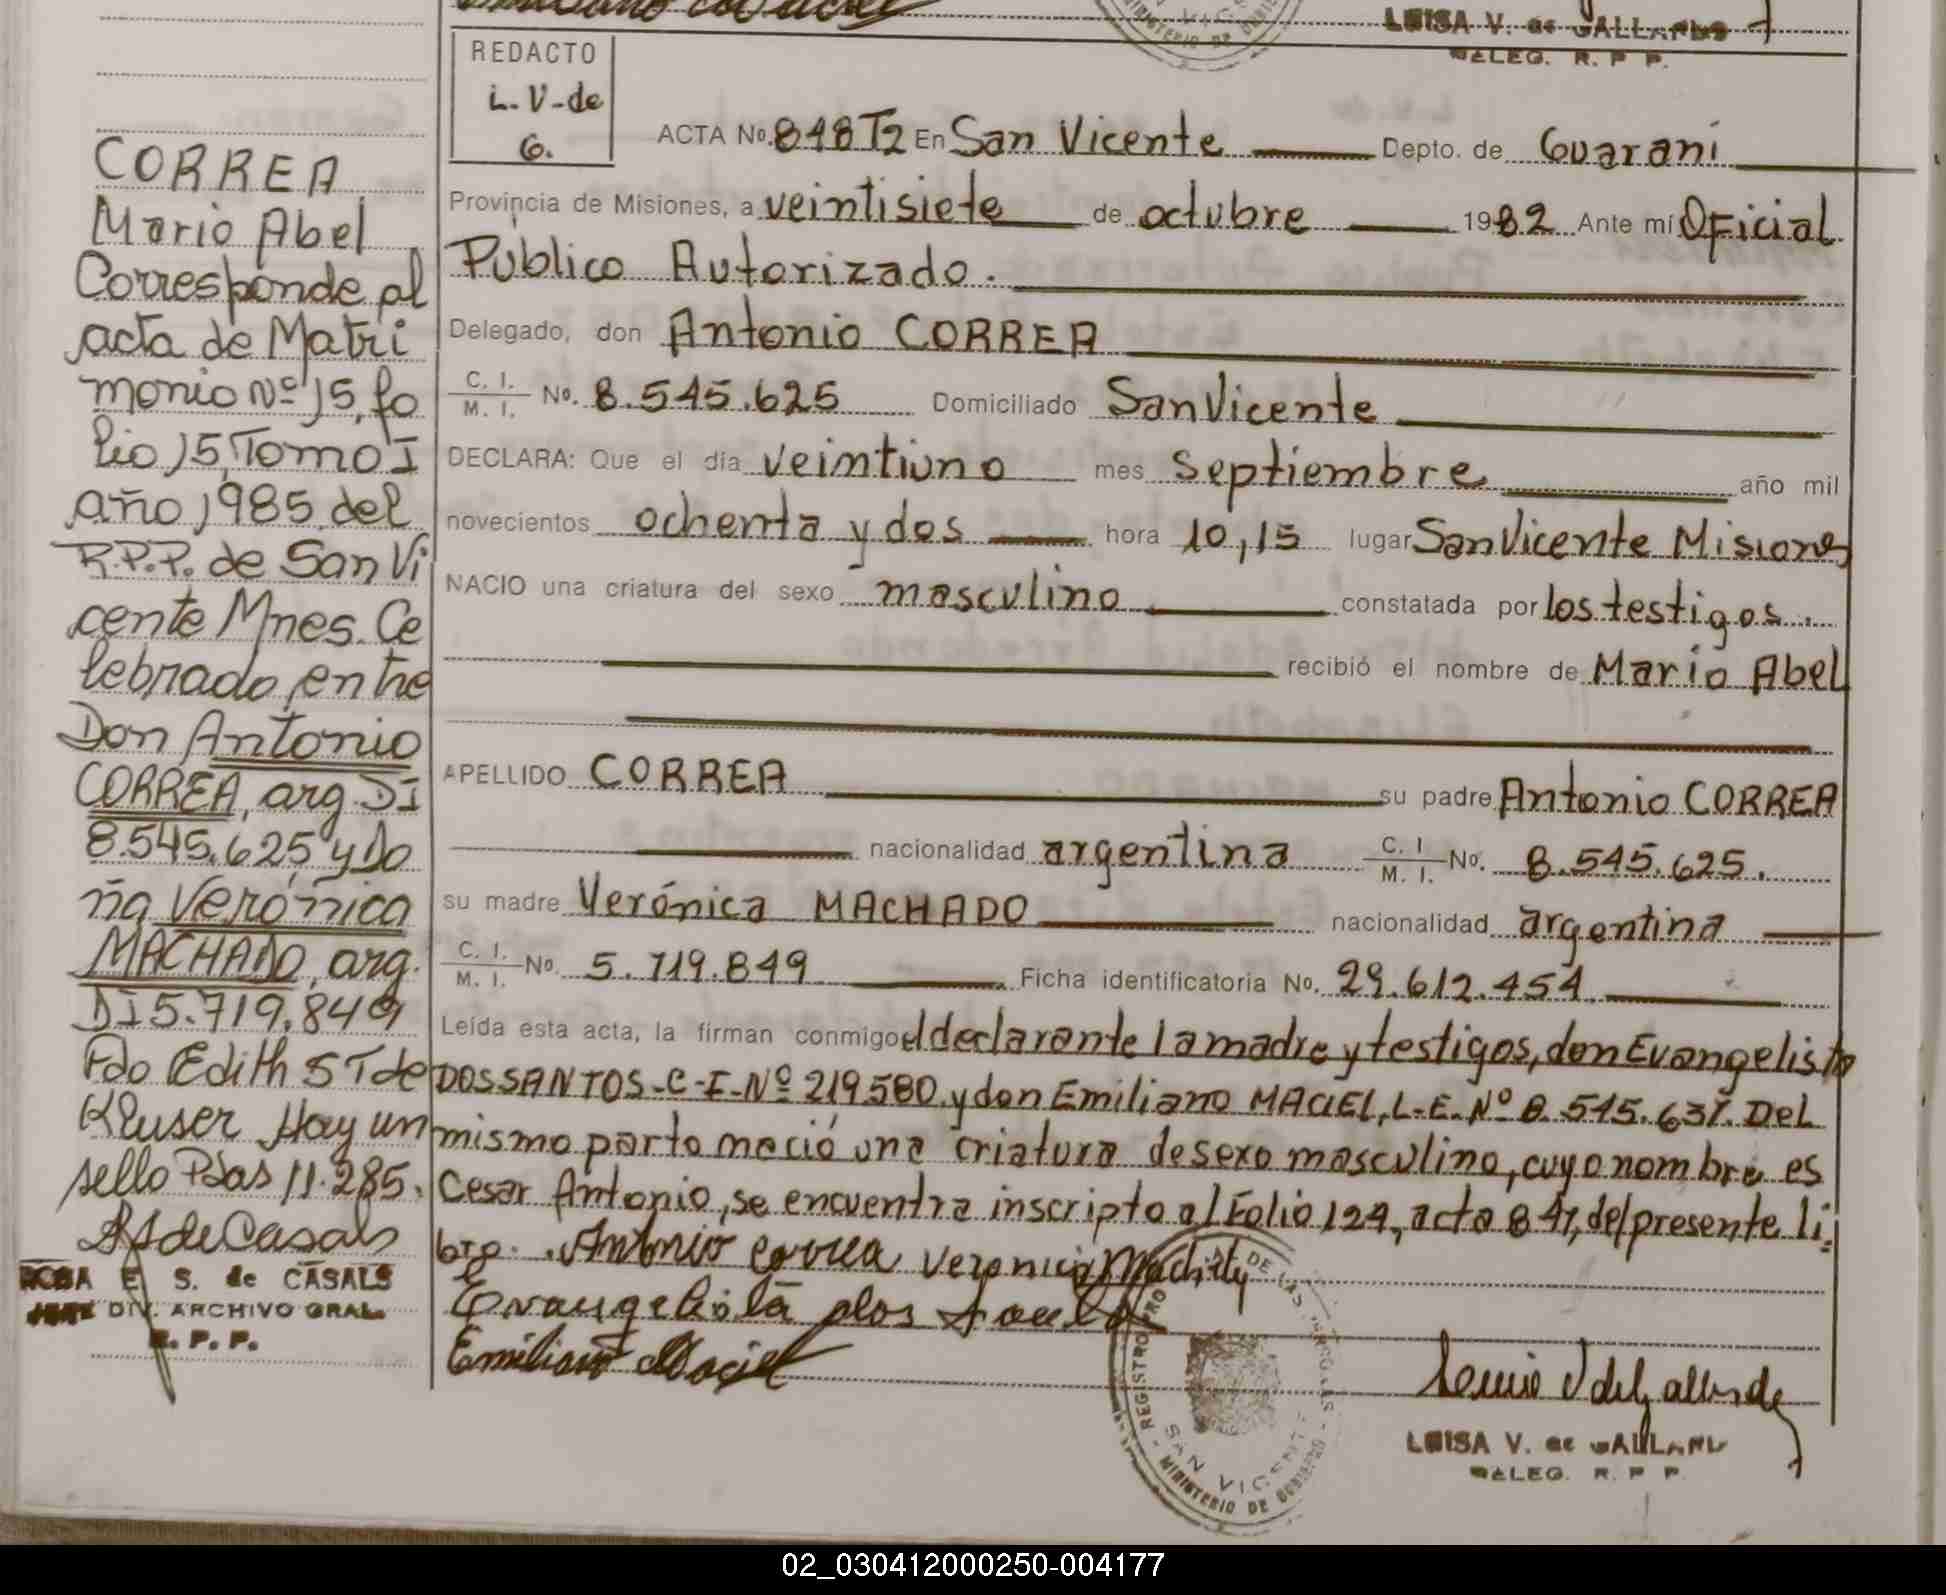 LUISA V. de GALLARDO
DELEG. R. P. P.
REDACTO
L. V. de
G.
CORREA
Mario Abel
Corresponde al
acta de Matri
monio Nº 15, fo
lio 15, Tomo I
año 1985 del
R.P.P. de San Vi
cente Mnes. Ce
lebrado entre
Don Antonio
CORREA, arg. DI
8.545.625 y Do
ña Verónica
MACHADO, arg.
DI 5.719.849
Fdo Edith S T de
Kluser Hay un
sello Pdas 11.285.
RS de Casals
ROSA E. S. de CASALS
JEFE DIV. ARCHIVO GRAL.
R. P. P.
ACTA No. 848 T2 En San Vicente Depto. de Guaraní
Provincia de Misiones, a veintisiete de octubre 1982 Ante mí Oficial
Público Autorizado.
Delegado, don Antonio CORREA
C. I. / M. I. No. 8.545.625 Domiciliado San Vicente
DECLARA: Que el día veintiuno mes septiembre año mil
novecientos ochenta y dos hora 10,15 lugar San Vicente Misiones
NACIO una criatura del sexo masculino constatada por los testigos.
recibió el nombre de Mario Abel
APELLIDO CORREA su padre Antonio CORREA
nacionalidad argentina C. I. / M. I. No. 8.545.625.
su madre Verónica MACHADO nacionalidad argentina
C. I. / M. I. No. 5.719.849 Ficha identificatoria No. 29.612.454.
Leída esta acta, la firman conmigo el declarante la madre y testigos, don Evangelista
DOS SANTOS-C-I-Nº 219.580 y don Emiliano MACIEL, L.E. Nº 8.545.637. Del
mismo parto nació una criatura de sexo masculino, cuyo nombre es
Cesar Antonio, se encuentra inscripto al Folio 124, acta 847, del presente li-
bro. Antonio Correa Veronica Machado
Evangelista dos Santos
Emiliano Maciel
REGISTRO PROVINCIAL DE LAS PERSONAS
SAN VICENTE
MINISTERIO DE GOBIERNO
LUISA V. de GALLARDO
DELEG. R. P. P.
02_030412000250-004177